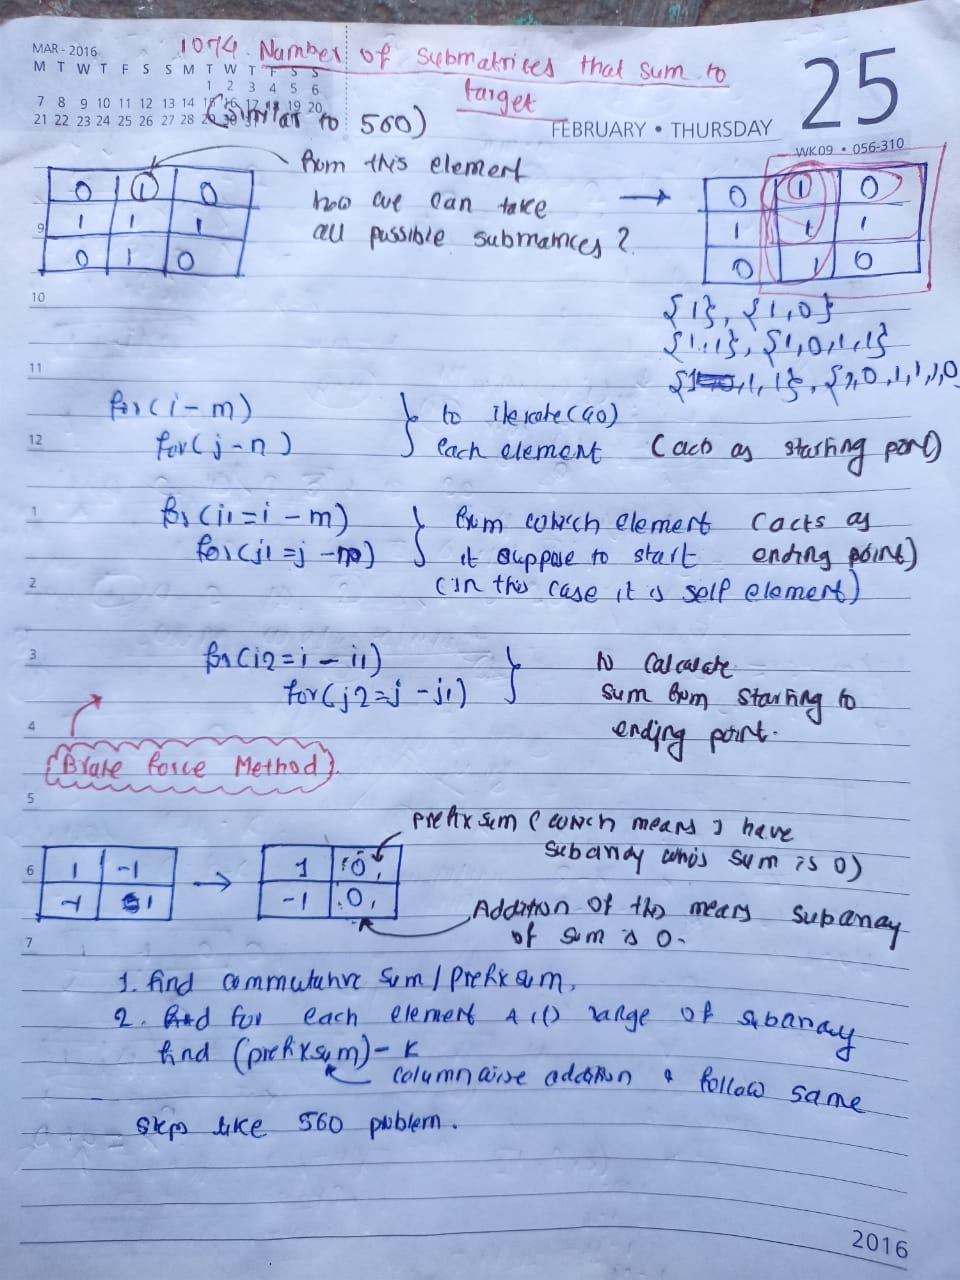 MAR - 2016
M T W T F S S M T W T F S S
1 2 3 4 5 6
7 8 9 10 11 12 13 14 15 16 17 18 19 20
21 22 23 24 25 26 27 28 29 30 31
1074. Number of Submatrices that sum to
target
(Similar to 560)
25
FEBRUARY • THURSDAY
WK09 • 056-310
0 1 0
1 1 1
0 1 0
from this element
how we can take
all possible submatrices ?
0 1 0
1 1 1
0 1 0
{1}, {1,0}
{1,1}, {1,0,1,1}
{1,1,1}, {1,0,1,1,1,0
9
10
11
for(i - m)
for(j - n)
to iterate(go)
each element (acts as starting point)
12
1
for(i1=i - m)
for(j1=j - n)
from which element (acts as
it suppose to start ending point)
(in this case it is self element)
2
3
for(i2=i - i1)
for(j2=j - j1)
to calculate
sum from starting to
ending point.
4
(Brute force Method)
5
prefix sum (which means I have
subarray whos sum is 0)
6
1 -1
-1 1
1 0
-1 0
Addition of this means subarray
of sum is 0.
7
1. find commutative sum / prefix sum.
2. for each element & range of subarray
find (prefixsum) - K
columnwise addition & follow same
steps like 560 problem.
2016